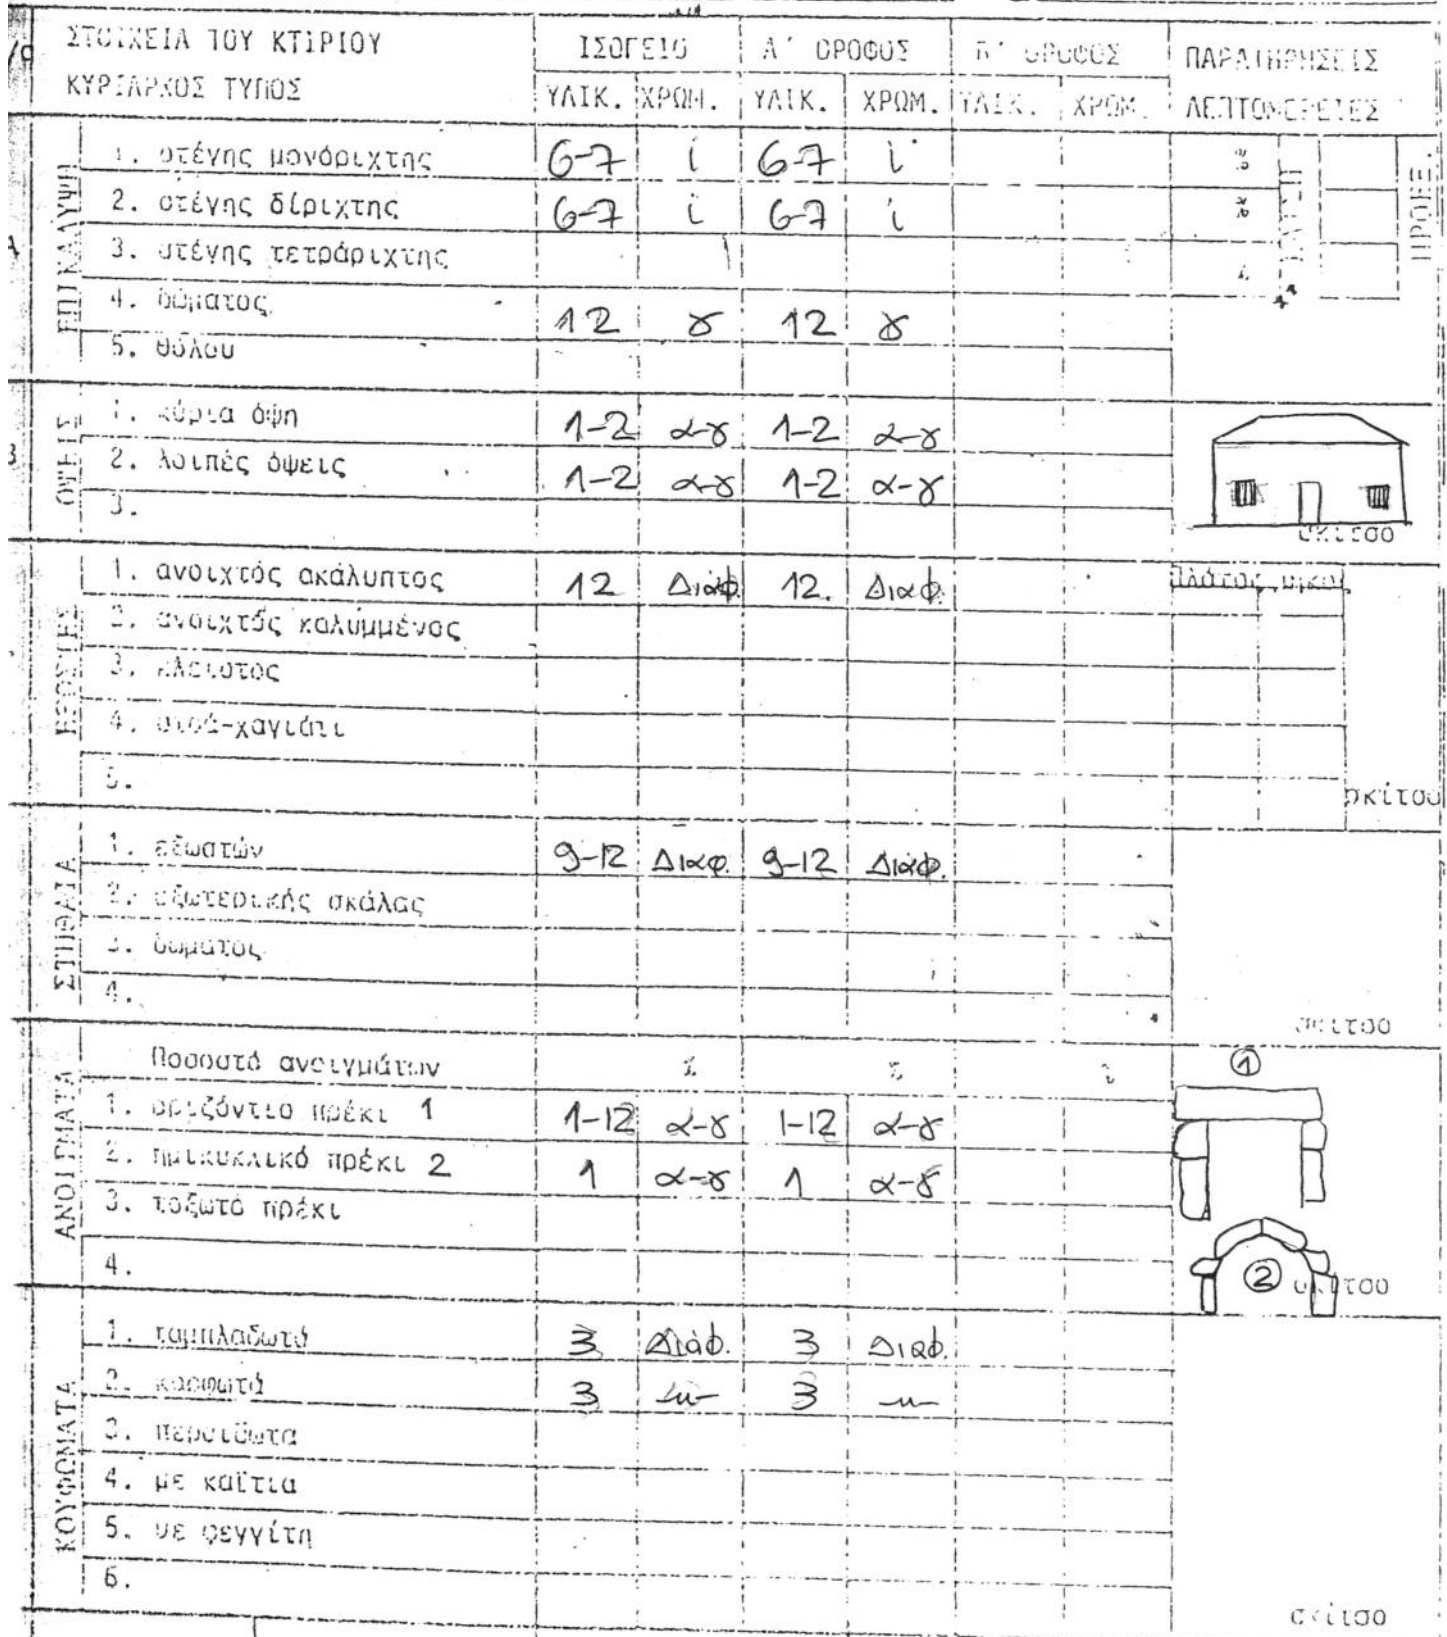 ΣΤΟΙΧΕΙΑ ΤΟΥ ΚΤΙΡΙΟΥ
ΚΥΡΙΑΡΧΟΣ ΤΥΠΟΣ
ΙΣΟΓΕΙΟ Α΄ ΟΡΟΦΟΣ Β΄ ΟΡΟΦΟΣ ΠΑΡΑΤΗΡΗΣΕΙΣ
ΥΛΙΚ. ΧΡΩΜ. ΥΛΙΚ. ΧΡΩΜ. ΥΛΙΚ. ΧΡΩΜ. ΛΕΠΤΟΜΕΡΕΙΕΣ
ΕΠΙΚΑΛΥΨΗ
1. στέγης μονόριχτης 6-7 i 6-7 i
2. στέγης δίριχτης 6-7 i 6-7 i
3. στέγης τετράριχτης
4. δώματος 12 γ 12 γ
5. θόλου
ΠΡΟΕΞ.
ΟΨΕΙΣ
1. κύρια όψη 1-2 α-γ 1-2 α-γ
2. λοιπές όψεις 1-2 α-γ 1-2 α-γ
3.
σκίτσο
ΕΞΩΣΤΕΣ
1. ανοιχτός ακάλυπτος 12 Διαφ. 12. Διαφ.
2. ανοιχτός καλυμμένος
3. κλειστος
4. στοά-χαγιάτι
5.
πλάτος μηκος
σκίτσο
ΣΤΗΘΑΙΑ
1. εξωστών 9-12 Διαφ. 9-12 Διαφ.
2. εξωτερικής σκάλας
3. δωματος
4.
σκίτσο
ΑΝΟΙΓΜΑΤΑ
Ποσοστό ανοιγμάτων % % %
1. οριζόντιο πρέκι 1 1-12 α-γ 1-12 α-γ
2. ημικυκλικό πρέκι 2 1 α-γ 1 α-γ
3. τοξωτό πρέκι
4.
1
2 σκίτσο
ΚΟΥΦΩΜΑΤΑ
1. ταμπλαδωτά 3 Διαφ. 3 Διαφ.
2. καρφωτά 3 -"- 3 -"-
3. περσιδωτα
4. με καϊτια
5. με φεγγίτη
6.
σκίτσο